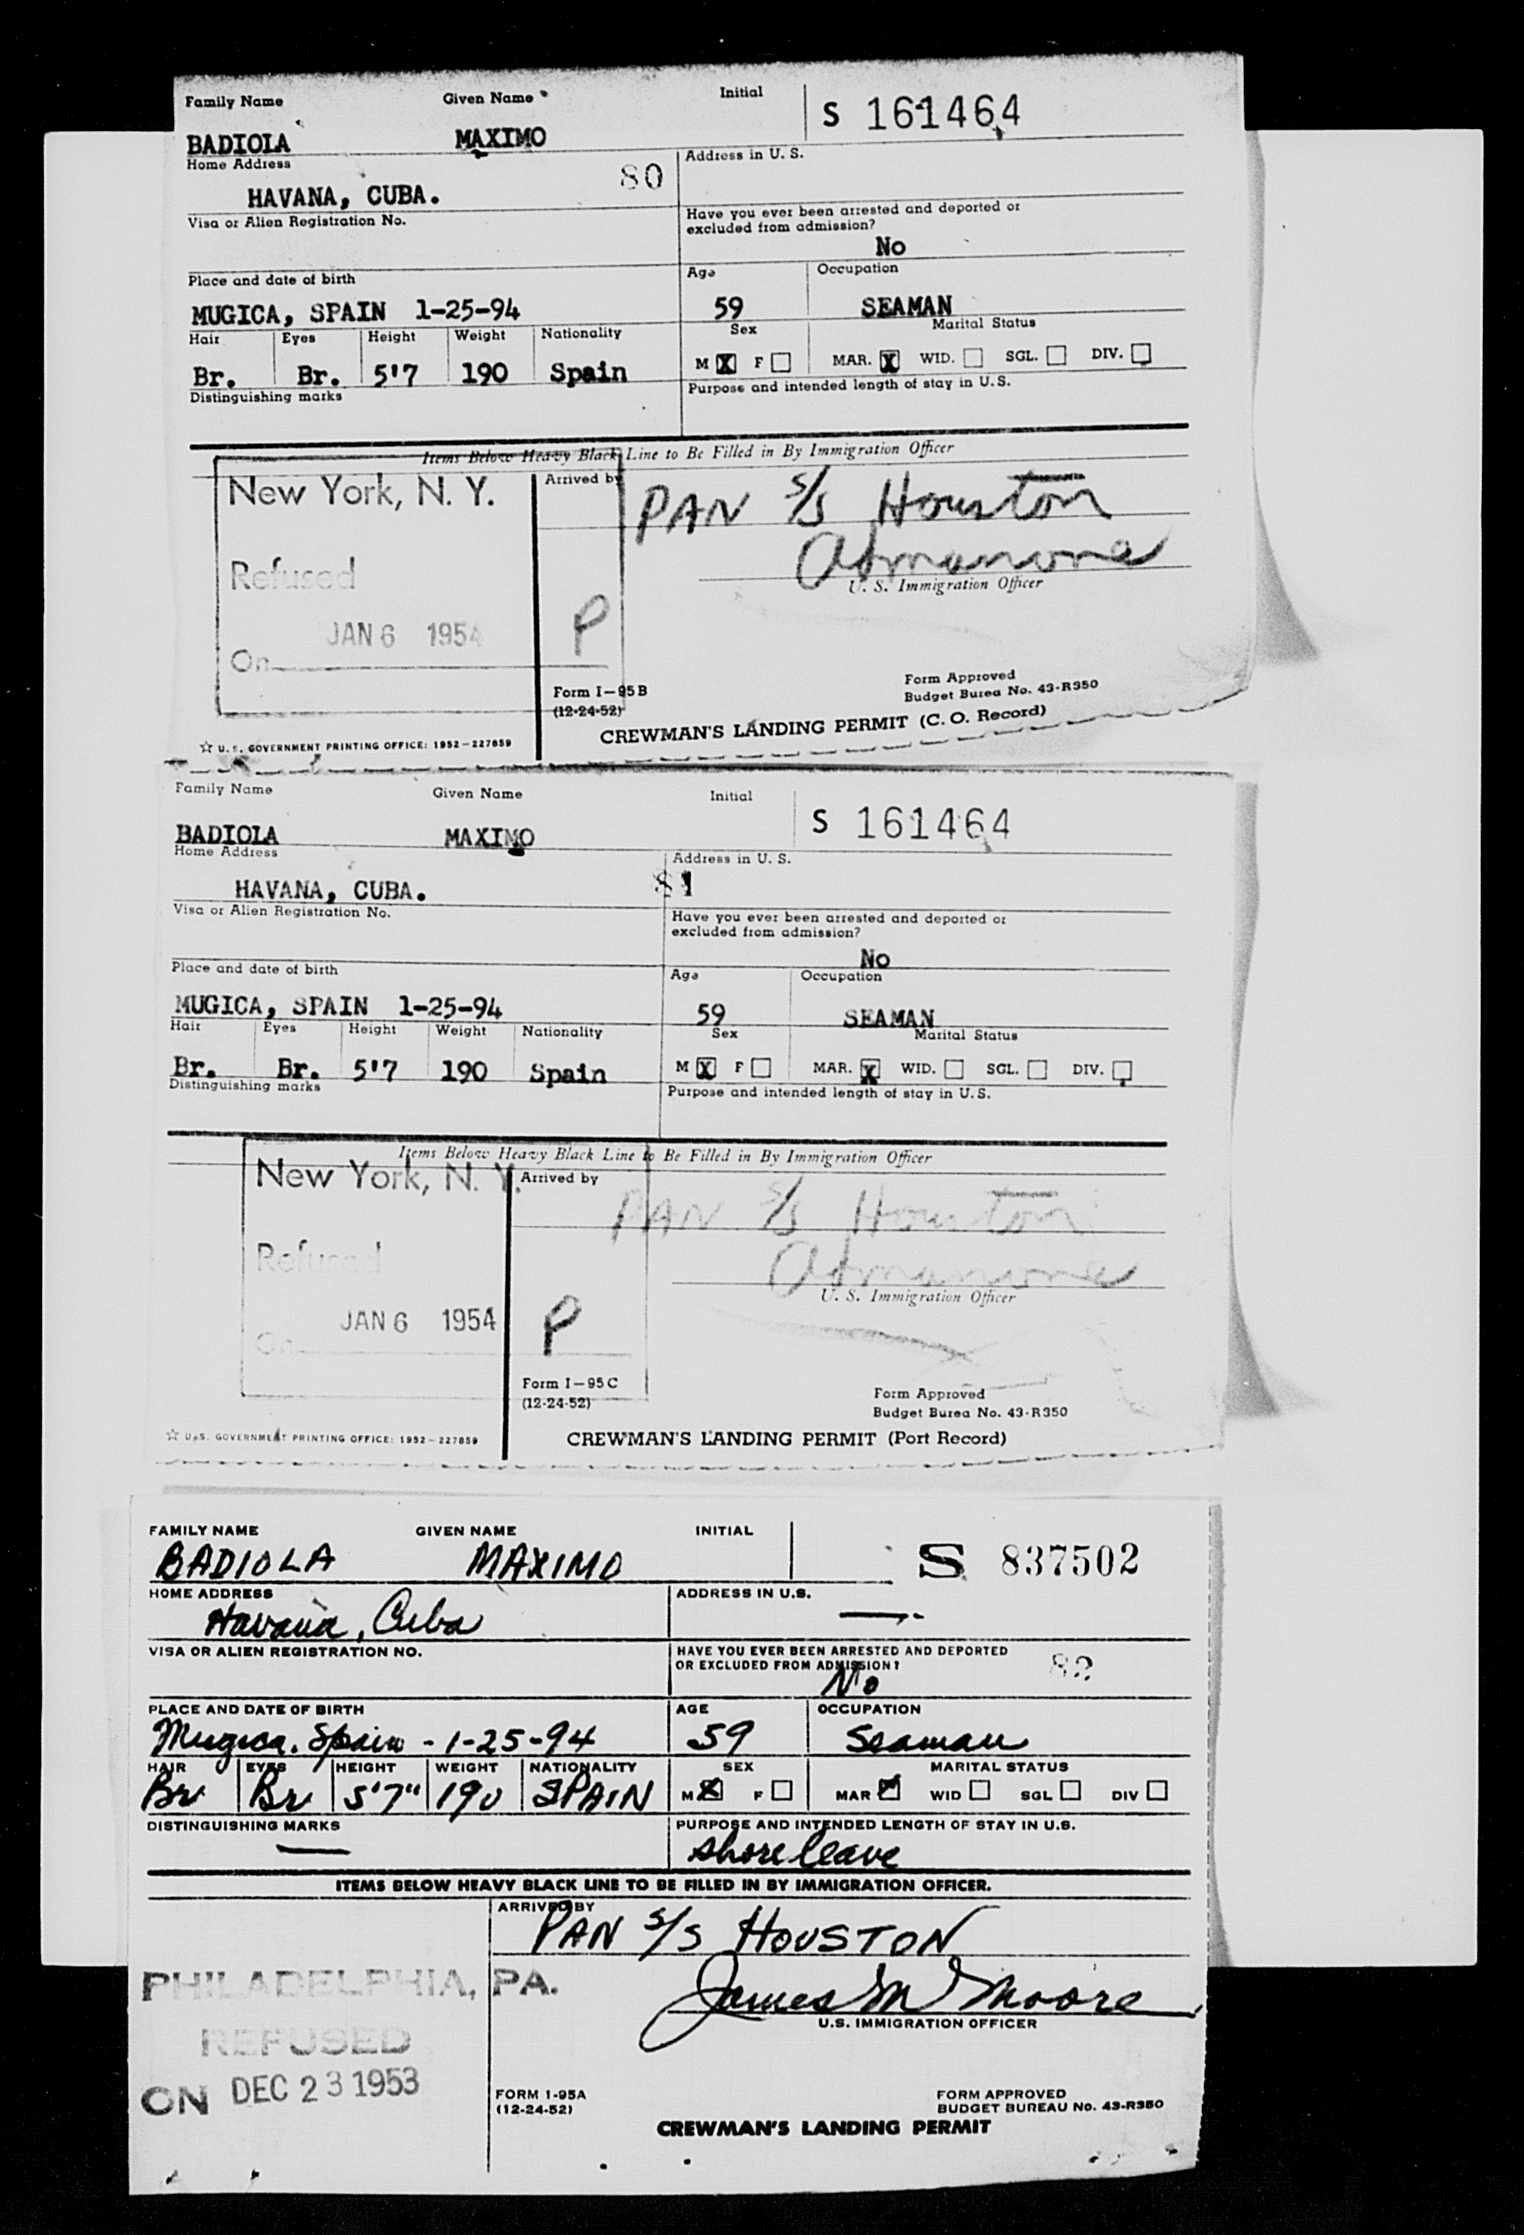 Family Name Given Name Initial S 161464
BADIOLA MAXIMO
Home Address Address in U. S.
HAVANA, CUBA. 80
Visa or Alien Registration No. Have you ever been arrested and deported or
excluded from admission?
No
Place and date of birth Age Occupation
MUGICA, SPAIN 1-25-94 59 SEAMAN
Hair Eyes Height Weight Nationality Sex Marital Status
Br. Br. 5'7 190 Spain M X F MAR. X WID. SGL. DIV.
Distinguishing marks Purpose and intended length of stay in U.S.
Items Below Heavy Black Line to Be Filled in By Immigration Officer
New York, N. Y. Arrived by PAN S/S Houston
Refused
U. S. Immigration Officer
JAN 6 1954 P
On
Form I-95B Form Approved
(12-24-52) Budget Burea No. 43-R350
☆ U.S. GOVERNMENT PRINTING OFFICE: 1952-227859 CREWMAN'S LANDING PERMIT (C. O. Record)
Family Name Given Name Initial S 161464
BADIOLA MAXIMO
Home Address Address in U. S.
HAVANA, CUBA. 81
Visa or Alien Registration No. Have you ever been arrested and deported or
excluded from admission?
No
Place and date of birth Age Occupation
MUGICA, SPAIN 1-25-94 59 SEAMAN
Hair Eyes Height Weight Nationality Sex Marital Status
Br. Br. 5'7 190 Spain M X F MAR. X WID. SGL. DIV.
Distinguishing marks Purpose and intended length of stay in U.S.
Items Below Heavy Black Line to Be Filled in By Immigration Officer
New York, N. Y. Arrived by PAN S/S Houston
Refused
U. S. Immigration Officer
JAN 6 1954 P
On
Form I-95C Form Approved
(12-24-52) Budget Burea No. 43-R350
☆ U.S. GOVERNMENT PRINTING OFFICE: 1952-227859 CREWMAN'S LANDING PERMIT (Port Record)
FAMILY NAME GIVEN NAME INITIAL S 837502
BADIOLA MAXIMO
HOME ADDRESS ADDRESS IN U.S.
Havana, Cuba
VISA OR ALIEN REGISTRATION NO. HAVE YOU EVER BEEN ARRESTED AND DEPORTED
OR EXCLUDED FROM ADMISSION? 82
No
PLACE AND DATE OF BIRTH AGE OCCUPATION
Mugica. Spain - 1-25-94 59 Seaman
HAIR EYES HEIGHT WEIGHT NATIONALITY SEX MARITAL STATUS
Br Br 5'7" 190 SPAIN M X F MAR WID SGL DIV
DISTINGUISHING MARKS PURPOSE AND INTENDED LENGTH OF STAY IN U.S.
shore leave
ITEMS BELOW HEAVY BLACK LINE TO BE FILLED IN BY IMMIGRATION OFFICER.
ARRIVED BY
PAN S/S HOUSTON
PHILADELPHIA, PA. James M Moore
U.S. IMMIGRATION OFFICER
REFUSED
ON DEC 23 1953
FORM I-95A FORM APPROVED
(12-24-52) BUDGET BUREAU No. 43-R350
CREWMAN'S LANDING PERMIT